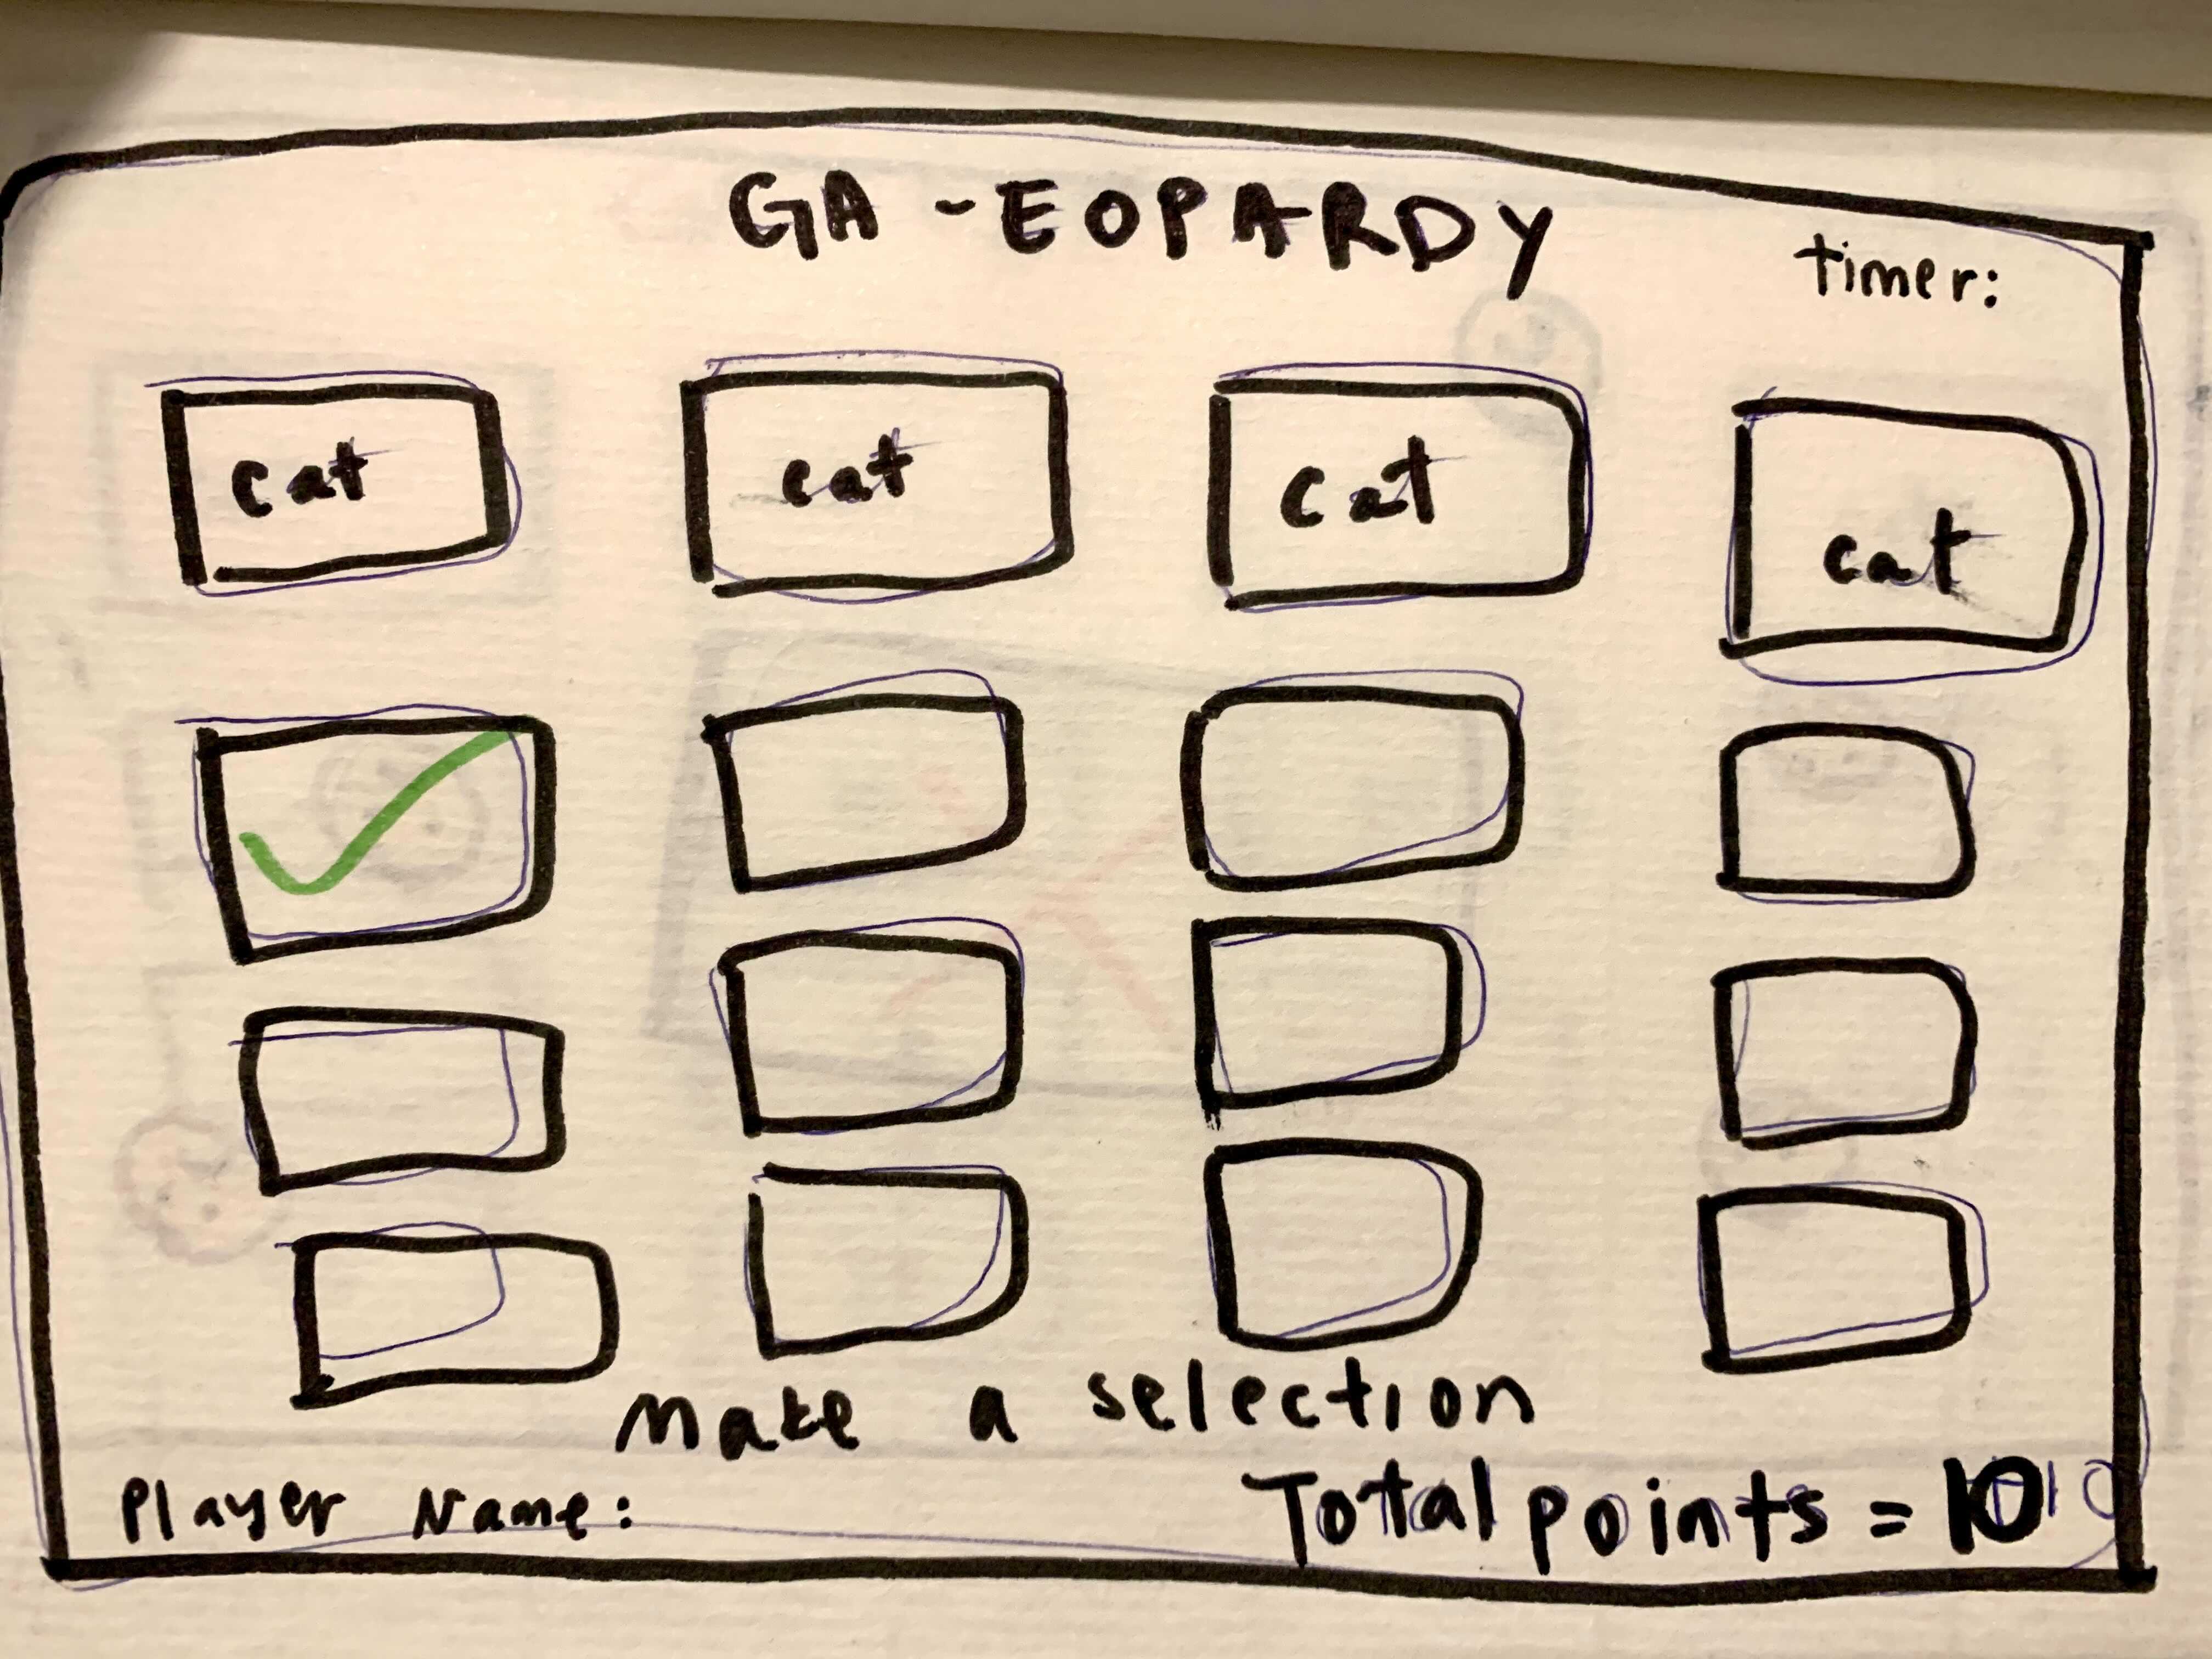 GA-EOPARDY
timer:
cat cat cat cat
make a selection
Player Name: Total points = 10